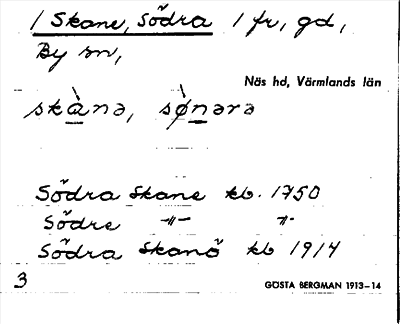 / Skane, Södra / fr, gd,
By sn,
Näs hd, Värmlands län
skànə, sø̀nərə
Södra Skane kb. 1750
Södre -〃- 〃-
Södra Skanö kb 1914
3
GÖSTA BERGMAN 1913–14